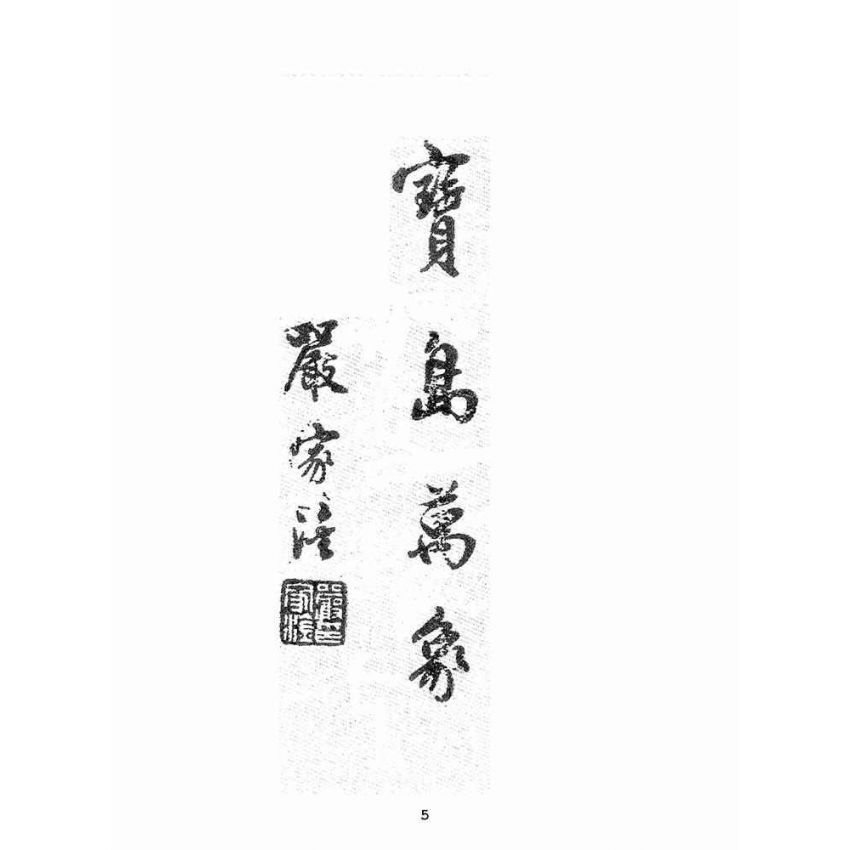 寶島萬象
嚴家淦
嚴印家淦
5